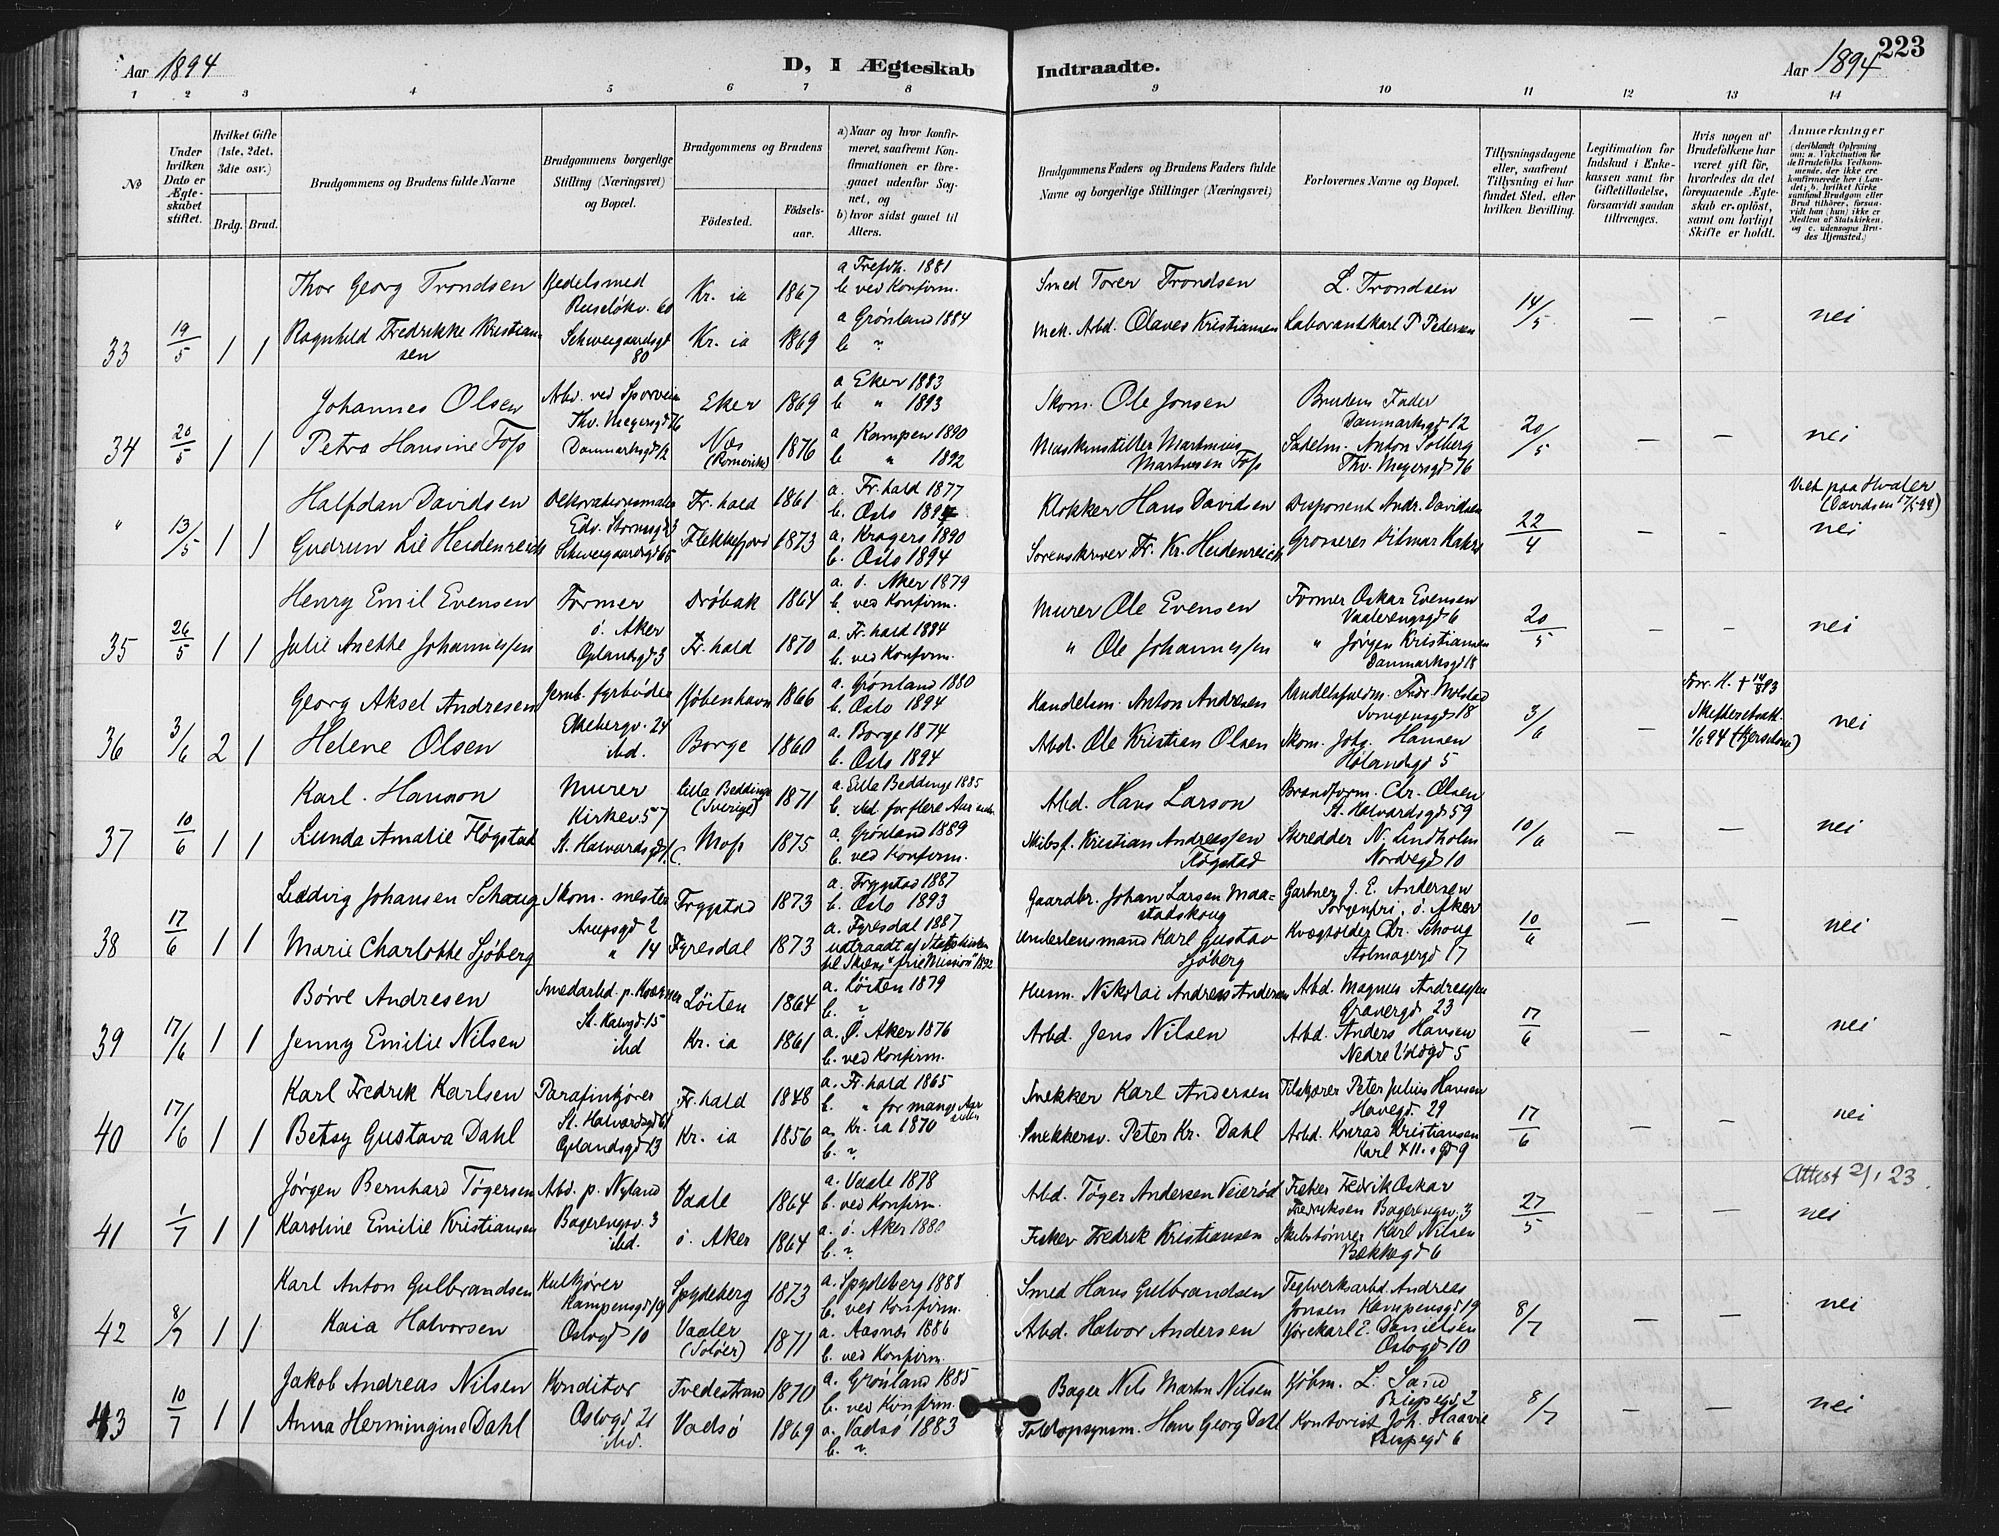 Aar 1894
D, I Ægteskab
Indtraadte.
Aar 1894
223
1 2 3 4 5 6 7 8 9 10 11 12 13 14
No
Under hvilken Dato er Ægteskabet stiftet.
Hvilket Gifte (1ste, 2det, 3die osv.)
Brdg. Brud.
Brudgommens og Brudens fulde Navne
Brudgommens borgerlige Stilling (Næringsvei) og Bopæl.
Brudgommens og Brudens
Fødested.
Fødselsaar.
a) Naar og hvor konfirmeret, saafremt Konfirmationen er foregaaet udenfor Sognet, og
b) hvor sidst gaaet til Alters.
Brudgommens Faders og Brudens Faders fulde Navne og borgerlige Stillinger (Næringsvei)
Forlovernes Navne og Bopæl.
Tillysningsdagene eller, saafremt Tillysning ei har fundet Sted, efter hvilken Bevilling.
Legitimation for Indskud i Enkekassen samt for Giftetilladelse, forsaavidt saadan tiltrænges.
Hvis nogen af Brudefolkene har været gift før, hvorledes da det foregaaende Ægteskab er opløst, samt om lovligt Skifte er holdt.
Anmærkninger (deriblandt Oplysning om: a. Vakcination for de Brudefolks Vedkommende, der ikke ere konfirmerede her i Landet; b. hvilket Kirkesamfund Brudgom eller Brud tilhører, forsaavidt han (hun) ikke er Medlem af Statskirken, og c. udensogns Brudes Hjemsted.)
33 19/5 1 1
Thor Georg Trondsen Kedelsmed Ruseløkv. 60 Kr. ia 1867 a 1881 b ved Konfirm. Smed Torer Trondsen L. Trondsen 14/5 — — nei
Ragnhild Fredrikke Kristiansen Schweigaardsgd 80 Kr. ia 1869 a Grønland 1884 b " Mek. Arbd. Olaves Kristiansen Laborantkarl P. Pedersen
34 20/5 1 1
Johannes Olsen Abd. ved Sporvein Thv. Meyersgd 76 Eker 1869 a Eker 1883 b " 1893 Skom. Ole Jonsen Brudens Fader Danmarksgd 12 20/5 — — nei
Petra Hansine Foss Danmarksgd 12 Næs (Romerike) 1876 a Kampen 1890 b " 1892 Maskinstiller Martinius Martinsen Foss Sadelm. Anton Solberg Thv. Meyersgd 76
" 13/5 1 1
Halfdan Davidsen Dekorationsmaler Edv. Stormsgd 3 Fr. hald 1861 a. Fr. hald 1877 b. Oslo 1894 Klokker Hans Davidsen Disponent Andr. Davidsen 22/4 — — Viet paa Hvaler (Davidsen 17/5 94) nei
Gudrun Lie Heidenreich Schweigaardsgd 65 Flekkefjord 1873 a. Kragerø 1890 b. Oslo 1894 Sorenskriver Fr. Kr. Heidenreich Grosserer Ditmar Kahrs
35 26/5 1 1
Henry Emil Evensen Former ø. Aker Drøbak 1864 a. ø. Aker 1879 b. ved Konfirm. Murer Ole Evensen Former Oskar Evensen Vaalerengsgd 6 20/5 — — nei
Julie Anette Johannessen Oplandsgd 3 Fr. hald 1870 a. Fr. hald 1884 b. ved Konfirm. " Ole Johannessen " Jørgen Kristiansen Danmarksgd 18
36 3/6 2 1
Georg Aksel Andresen Jernb. fyrbøder Ekebergv. 24 Kjøbenhavn 1866 a. Grønland 1880 b. Oslo 1894 Handelsm. Anton Andresen Handelsfuldm. Fdr. Molstad Sorgensgd 18 3/6 — Forr. H. + 14/8 83 Skifteretsatt. 1/6 94 nei
Helene Olsen ibd. Borge 1860 a. Borge 1874 b. Oslo 1894 Abd. Ole Kristian Olsen Skom. Johs. Hansen Hølandsgd 5
37 10/6 1 1
Karl Hanson Murer Kirkev. 57 Lilla Beddinge (Sverige) 1871 a. Lilla Beddinge 1885 b. ibd. for flere Aar siden Abd. Hans Larson Brandform. Chr. Olsen St. Halvardsgd 59 10/6 — — nei
Lunda Amalie Fløgstad St. Halvardsgd Moss 1875 a. Grønland 1889 b. ved Konfirm. Skibsf. Kristian Andreassen Fløgstad Skredder N. Lindholm Nordregd 10
38 17/6 1 1
Ludvig Johansen Schoug Skom. mester Arupsgd 2 Trygstad 1873 a. Trygstad 1887 b. Oslo 1893 Gaardbr. Johan Larsen Maastadskoug Gartner J. E. Andersen Sorgenfri, ø. Aker 10/6 — — nei
Marie Charlotte Sjøberg " 14 Fyresdal 1873 a. Fyresdal 1887 udtraadt af Statskirken til Skiens "frie Mission" 1892 Underlensmand Karl Gustav Sjøberg Kvægholder Chr. Schoug Aslmagergd 17
39 17/6 1 1
Børre Andresen Smedarbd. p. Kværner St. Halvgd. 15 Løiten 1864 a. Løiten 1879 b. " Husm. Nikolai Andreas Andersen Abd. Magnus Andreasen Gravergd 23 17/6 — — nei
Jenny Emilie Nilsen ibd Kr. ia 1861 a. Ø. Aker 1876 b. ved Konfirm. Arbd. Jens Nilsen Abd. Anders Hansen Nedre Voldgd 5
40 17/6 1 1
Karl Fredrik Karlsen Parafinkjører St. Halvardsgd Fr. hald 1848 a. Fr. hald 1865 b. " for mange Aar siden Snekker Karl Andersen Tilskjærer Peter Julius Hansen Havegd. 29 17/6 — — nei
Betsy Gustava Dahl Oplandsgd 13 Kr. ia 1856 a. Kr. ia 1870 b. ? Snekkersv. Peter Kr. Dahl Arbd. Konrad Kristiansen Karl XII.s gd 9
41 1/7 1 1
Jørgen Bernhard Tøgersen Abd. p. Nyland Bagerengsv. 3 Vaale 1864 a. Vaale 1878 b. ved Konfirm. Abd. Tøger Andersen Veierød Fisker Fredrik Oskar Fredriksen Bagerengsv. 3 27/5 — — Attest 2/1 23. nei
Karoline Emilie Kristiansen ibd. ø. Aker 1864 a. ø. Aker 1880 b. ? Fisker Fredrik Kristiansen Skibstømrer Karl Nilsen Bækkegd 6
42 8/7 1 1
Karl Anton Gulbrandsen Kulkjører Kampensgd 19 Spydeberg 1873 a. Spydeberg 1888 b. ved Konfirm. Smed Hans Gulbrandsen Teglverksarbd. Andreas Jonsen Kampensgd 19 8/7 — — nei
Kaia Halvorsen Oslogd 10 Vaaler (Soløer) 1871 a. Aasnes 1886 b. ved Konfirm. Abd. Halvor Andersen Kjørekarl E. Danielsen Oslogd 10
43 10/7 1 1
Jakob Andreas Nilsen Konditor Oslogd 21 Tvedestrand 1870 a. Grønland 1885 b. ved Konfirm. Bager Nils Martin Nilsen Kjøbm. L. Sand Bispegd 2 8/7 — — nei
Anna Hermingine Dahl ibd. Vadsø 1869 a. Vadsø 1883 b. ? Toldopsynsm. Hans Georg Dahl Kontorist Joh. Haavie Bispegd 6